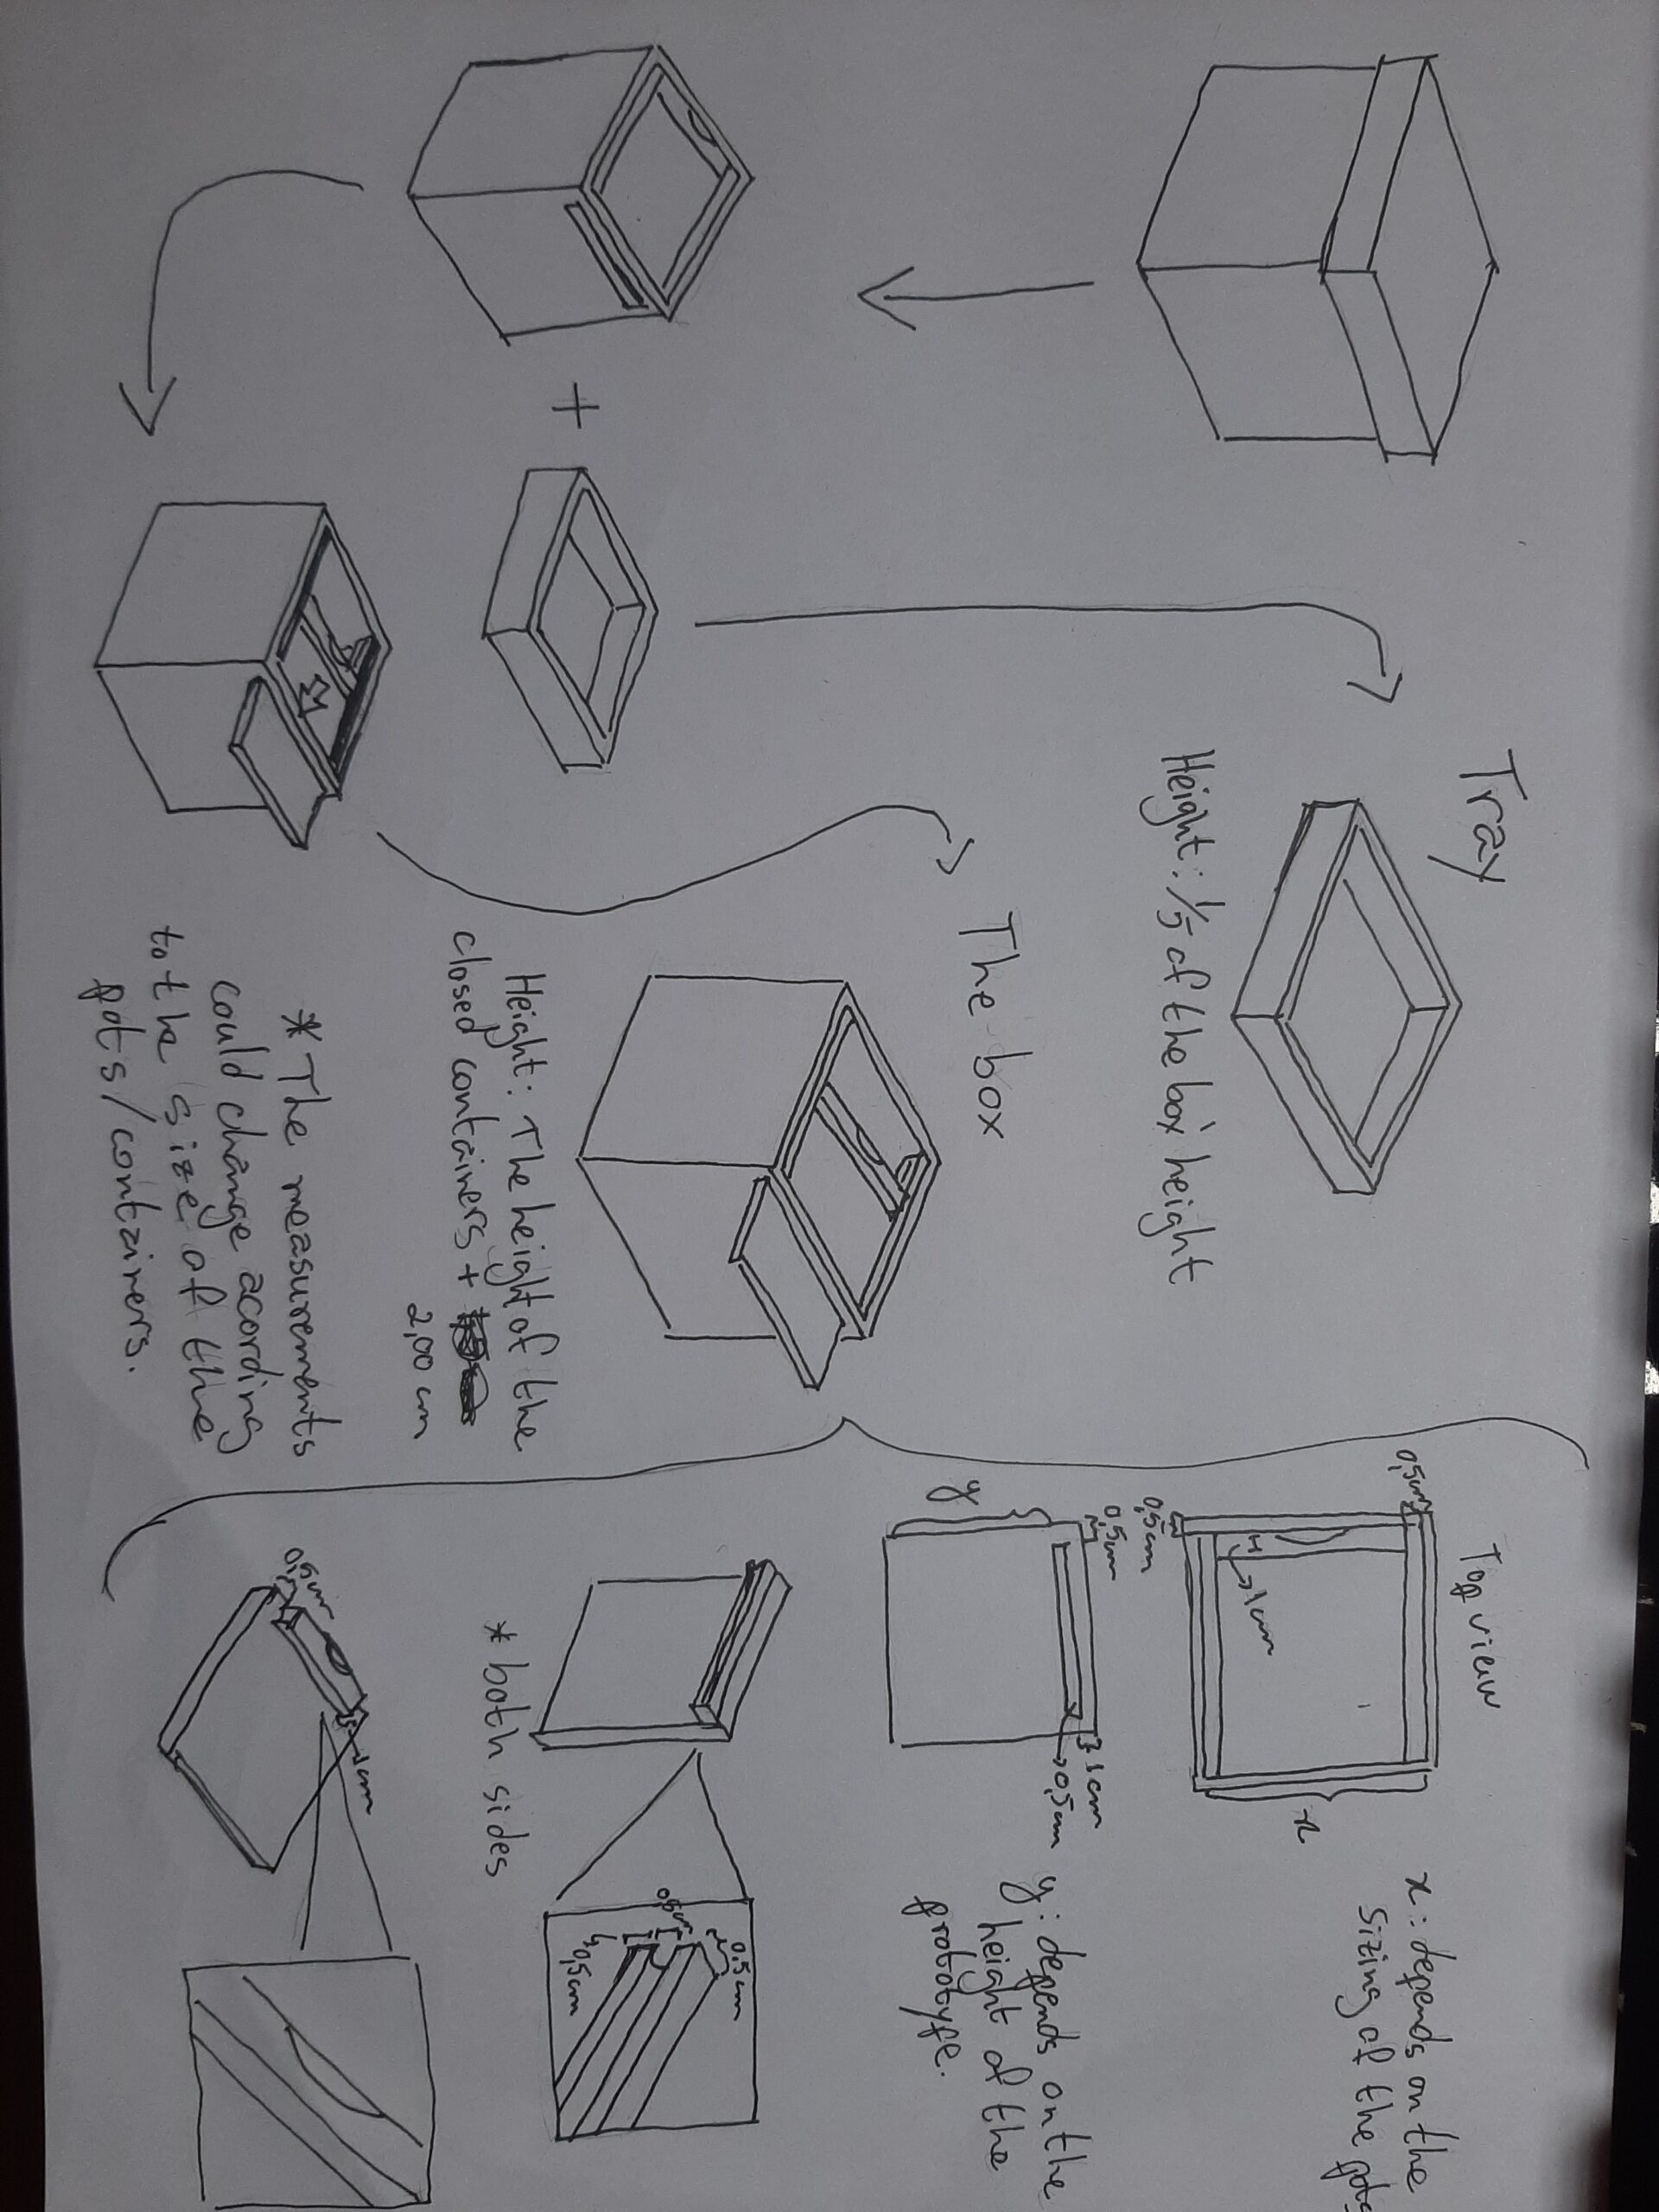 Tray
Height: 1/5 of the box' height
The box
Height: The height of the
closed containers +
2,00 cm
* The measurements
could change acording
to the size of the
pots/containers.
Top view
0,5cm
0,5cm
1cm
x
x: depends on the
sizing of the pots
y
0,5cm
1cm
0,5cm
y: depends on the
height of the
prototype.
* both sides
0,5cm
0,5cm
0,5cm
0,5cm
1cm